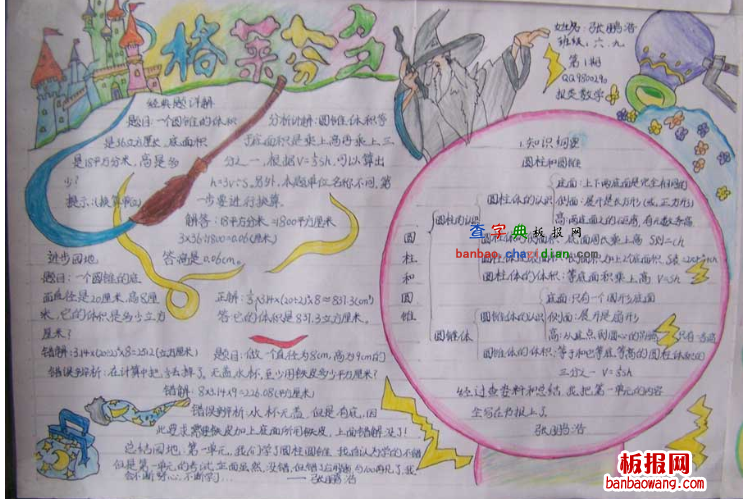 格莱芬多
姓名：张鹏浩
班级：六、九
第1期
报类数学
经典题详解
题目：一个圆锥的体积
是36立方厘米，底面积
是18平方分米，高是多
少？
分析讲解：圆锥体体积等
于底面积乘上高再乘上三
分之一，
可以算出
另外，本题单位名称不同，第
一步要进行换算。
解答：18平方分米=1800平方厘米
3×36÷1800=0.06(厘米)
答：高是0.06cm。
进步园地
题目：一个圆锥的底
面直径是20厘米，高8厘
米，它的体积是多少立方
厘米？
答：它的体积是837.3立方厘米。
错解：3.14×(20÷2)²×8=2512(立方厘米)
错误剖析：在计算中把
题目：做一个直径为8cm，高为9cm的
无盖水杯，至少用铁皮多少平方厘米？
错解：8×3.14×9=226.08(平方厘米)
错误剖析：水杯无盖，但是有底，因
此要求需要铁皮加上底面所用铁皮，上面错解没了！
总结园地：第一单元，我们学了圆柱圆锥，我自认为学的不错
但是第一单元的考试
——张鹏浩
1.知识梳理
圆柱和圆锥
圆柱和圆锥
圆柱的认识
圆柱体的认识
底面：上下两底面是完全相同的
侧面：展开是长方形(或正方形)
高：两底面上的距离，有无数条高
底面周长乘上高 S侧=ch
圆柱体的体积：等底面积乘上高 V=sh
圆锥体
圆锥体的认识
底面：只有一个圆形底面
侧面：展开是扇形
圆锥体的体积：等于和它等底等高的圆柱体积的
三分之一 V=⅓sh
经过查资料和总结，我把第一单元的内容
全写在报上了。
张鹏浩
查字典板报网
banbao.chazidian.com
板报网
banbaowang.com